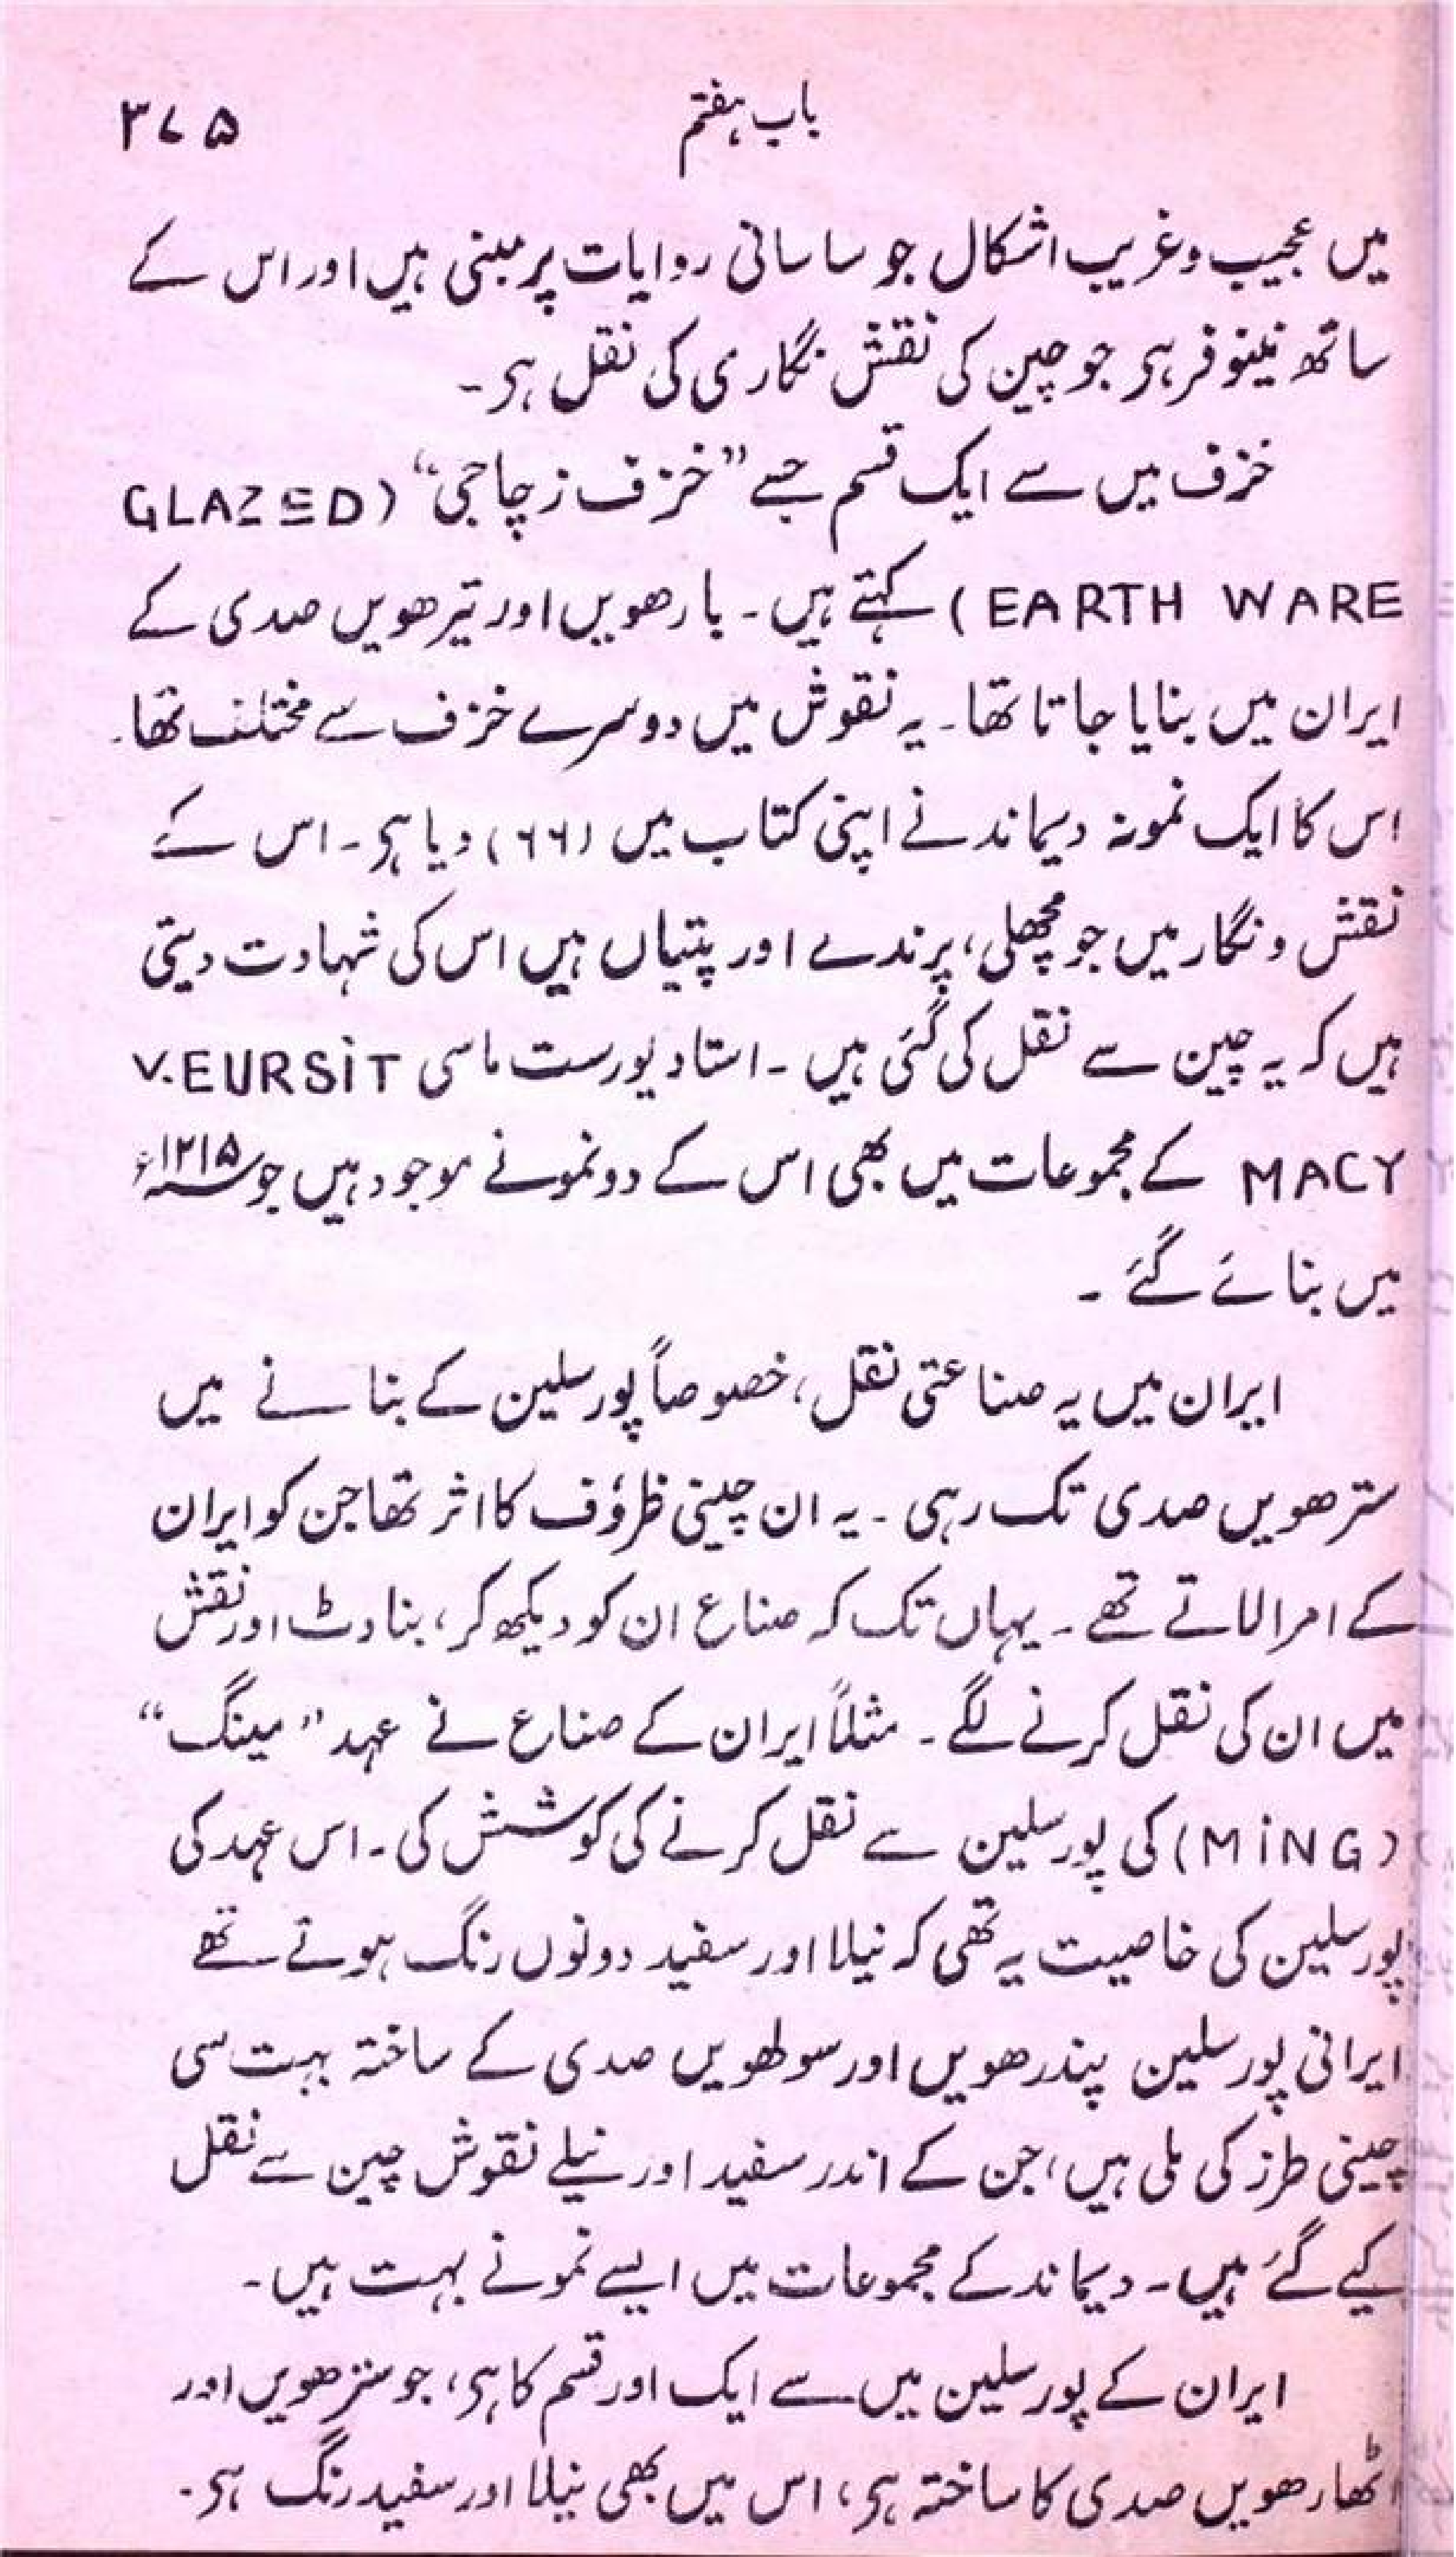 باب ہفتم
۳۷۵
میں عجیب و غریب اشکال جو ساسانی روایات پر مبنی ہیں اور اس کے
ساتھ نینوفر ہر جو چین کی نقش نگاری کی نقل ہر۔
خزف میں سے ایک قسم جسے ”خزف زچاجی“ (GLAZED
EARTH WARE) کہتے ہیں۔ بارھویں اور تیرھویں صدی کے
ایران میں بنایا جاتا تھا۔ یہ نقوش میں دوسرے خزف سے مختلف تھا۔
اس کا ایک نمونہ دیماند نے اپنی کتاب میں (۶۶) دیا ہر۔ اس کے
نقش و نگار میں جو مچھلی، پرندے اور پتیاں ہیں اس کی شہادت دیتی
ہیں کہ یہ چین سے نقل کی گئی ہیں۔ استاد یورست ماسی V.EURSiT
MACY کے مجموعات میں بھی اس کے دو نمونے موجود ہیں جو ۱۲۱۵ء
میں بنائے گئے۔
ایران میں یہ صناعتی نقل، خصوصاً پورسلین کے بنانے میں
سترھویں صدی تک رہی۔ یہ ان چینی ظرؤف کا اثر تھا جن کو ایران
کے امرا لاتے تھے۔ یہاں تک کہ صناع ان کو دیکھ کر، بناوٹ اور نقش
میں ان کی نقل کرنے لگے۔ مثلاً ایران کے صناع نے عہد ”مینگ“
(MiNG) کی پورسلین سے نقل کرنے کی کوشش کی۔ اس عہد کی
پورسلین کی خاصیت یہ تھی کہ نیلا اور سفید دونوں رنگ ہوتے تھے
ایرانی پورسلین پندرھویں اور سولھویں صدی کے ساختہ بہت سی
چینی طرز کی ملی ہیں، جن کے اندر سفید اور نیلے نقوش چین سے نقل
کیے گئے ہیں۔ دیماند کے مجموعات میں ایسے نمونے بہت ہیں۔
ایران کے پورسلین میں سے ایک اور قسم کا ہر، جو سترھویں اور
اٹھارھویں صدی کا ساختہ ہر، اس میں بھی نیلا اور سفید رنگ ہر۔